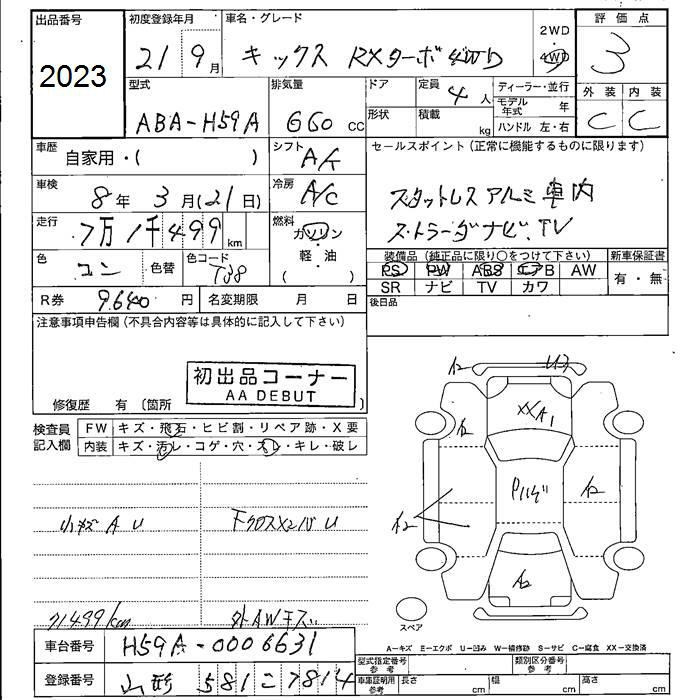 出品番号 初度登録年月 車名・グレード 2WD 評価点
2023 21 9月 キックス RXターボ4WD 4WD 3
型式 排気量 ドア 定員 4人 ディーラー・並行 外装 内装
ABA-H59A 660 CC 形状 積載 kg モデル年式 年 C C
ハンドル 左・右
車歴 自家用・( ) シフト セールスポイント(正常に機能するものに限ります)
車検 8年 3月(21日) 冷房 A/C スタットレス アルミ 車内
走行 7万1千499km 燃料 ガソリン ナビ、TV
軽・油
( )
色 コン 色替 色コード T38 装備品(純正品に限り○をつけて下さい) 新車保証書
PS PW ABS エアB AW 有・無
R券 9640円 名変期限 月 日 SR ナビ TV カワ
注意事項申告欄(不具合内容等は具体的に記入して下さい) 後日品
初出品コーナー
AA DEBUT
修復歴 有 〔箇所 〕
検査員記入欄 FW キズ・飛石・ヒビ割・リペア跡・X要
内装 キズ・汚レ・コゲ・穴・スレ・キレ・破レ
XXA1
A2
小キズ A U
71499km 外AWキズ
スペア
車台番号 H59A-0006631 A-キズ E-エクボ U-凹み W-補修跡 S-サビ C-腐食 XX-交換済
型式指定番号 参考 類別区分番号 参考
登録番号 山形 581 こ 7814 車庫証明用 参考 長さ cm 幅 cm 高さ cm